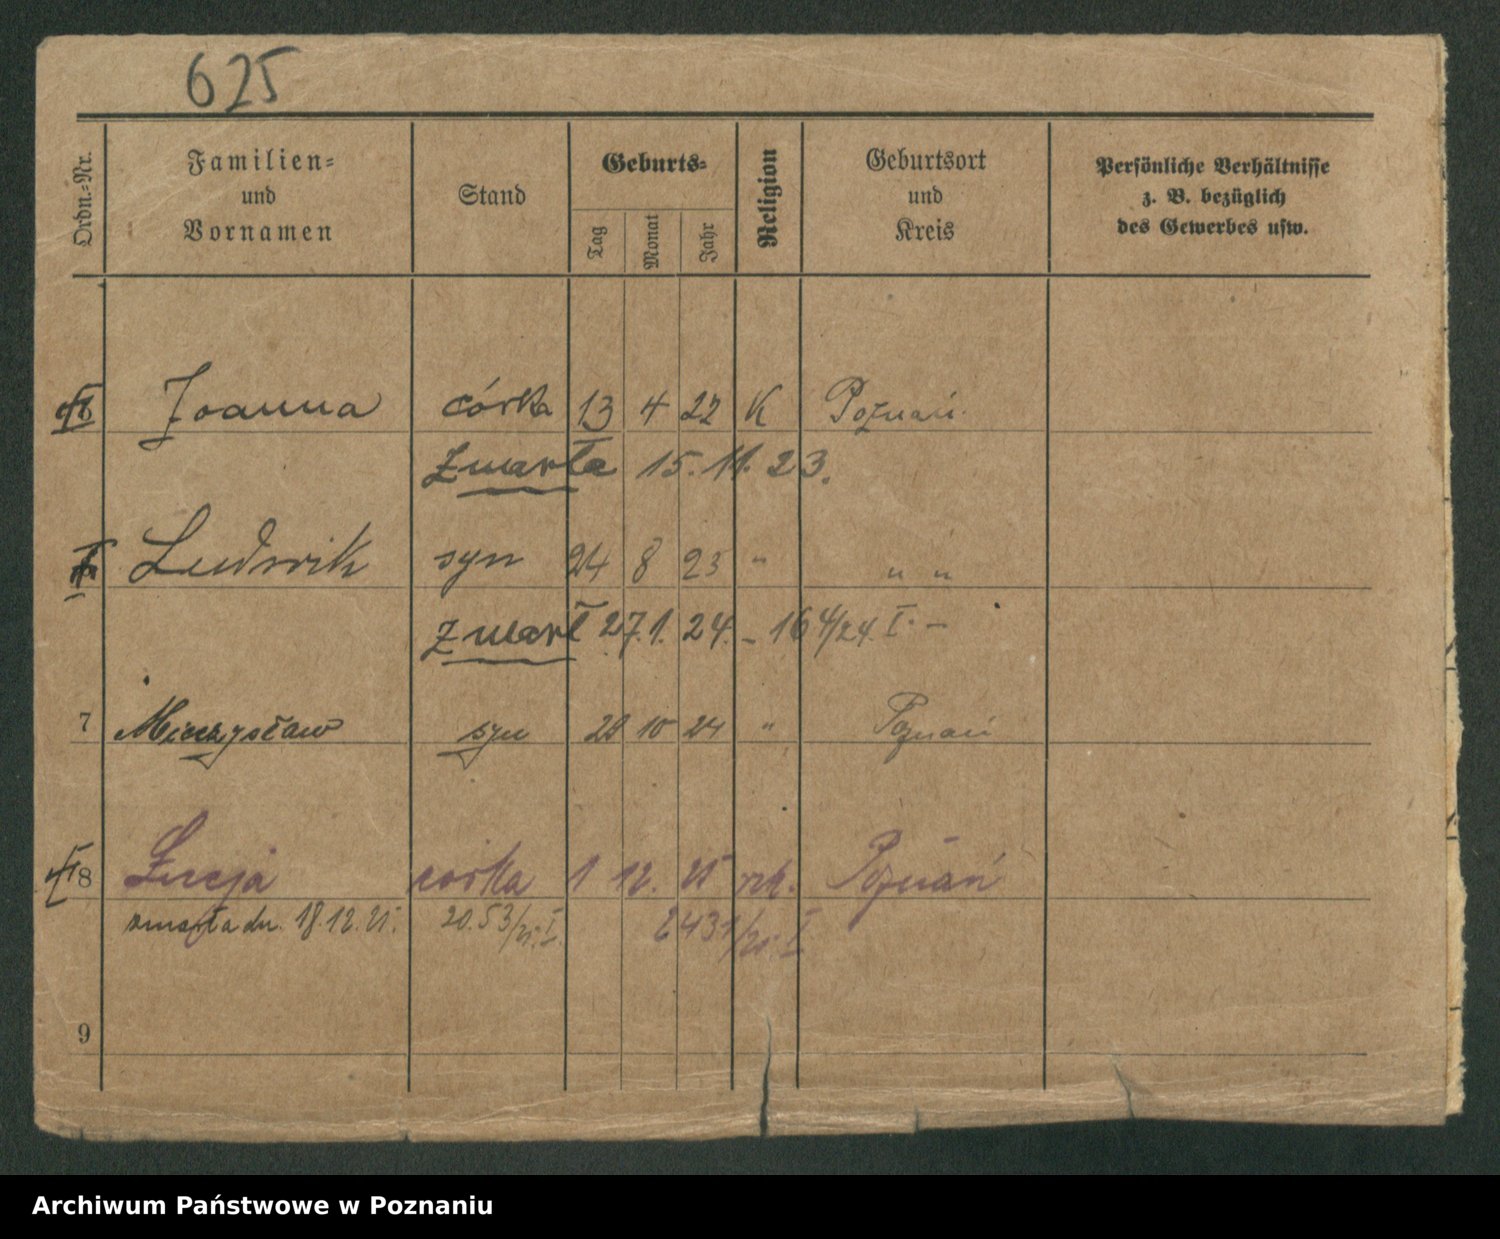 625
Ordn.-Nr.
Familien-
und
Vornamen
Stand
Geburts-
Tag
Monat
Jahr
Religion
Geburtsort
und
Kreis
Persönliche Verhältnisse
z. B. bezüglich
des Gewerbes usw.
Joanna córka 13 4 22 K Poznań.
Zmarła 15. 11. 23.
Ludwik syn 24 8 23 " " "
Zmarł 27.1. 24. – 164/24. I. –
7 Mieczysław syn 28 10 24 " Poznań
8 Łucja córka 1 12. 25 rzk. Poznań
zmarła dn. 18.12.25. 2053/25. I. 2431/25. I
9
Archiwum Państwowe w Poznaniu